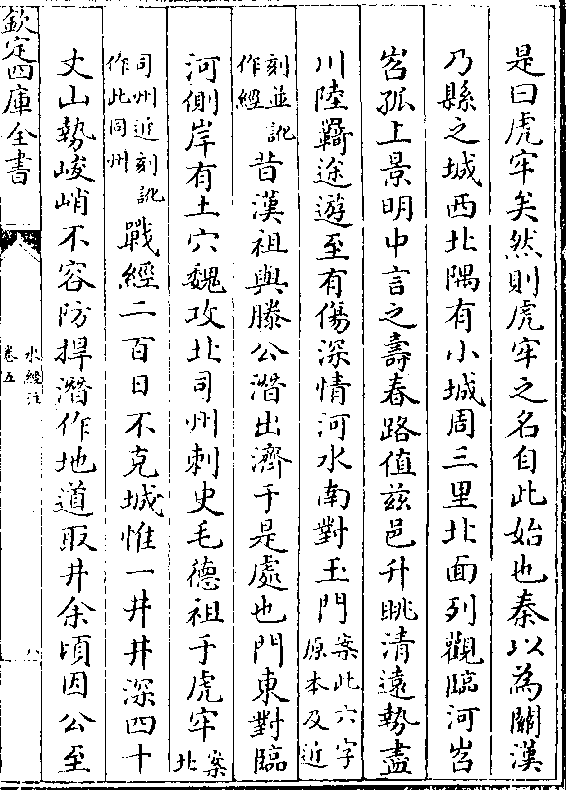 是曰虎牢矣然則虎牢之名自此始也秦以為關漢
乃縣之城西北隅有小城周三里北面列觀臨河岧
岧孤上景明中言之壽春路值兹邑升眺清遠勢盡
川陸羇途遊至有傷深情河水南對玉門案此六字原本及近
刻並訛作經昔漢祖與滕公潛出濟于是處也門東對臨
河側岸有土穴魏攻北司州刺史毛德祖于虎牢案北
司州近刻訛作此同州戰經二百日不克城惟一井井深四十
丈山勢峻峭不容防捍潛作地道取井余頃因公至
欽定四庫全書
水經注
卷五
八